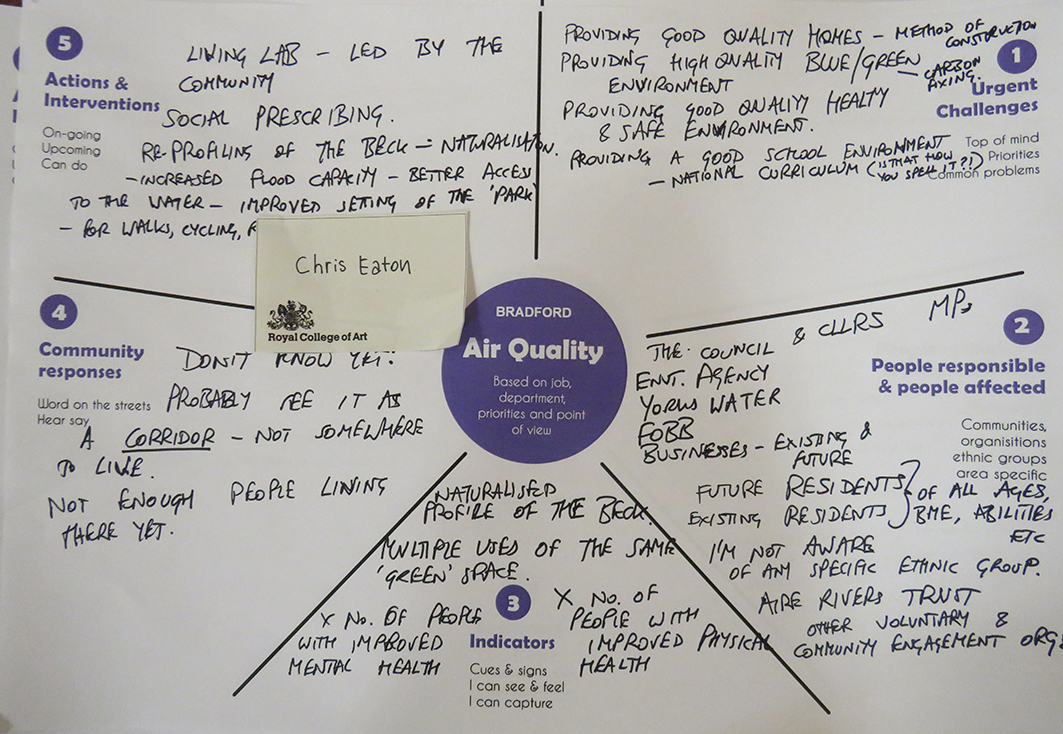 5
Actions &
Interventions
On-going
Upcoming
Can do
LIVING LAB – LED BY THE
COMMUNITY
SOCIAL PRESCRIBING.
RE-PROFILING OF THE BECK – NATURALISATION.
– INCREASED FLOOD CAPACITY – BETTER ACCESS
TO THE WATER – IMPROVED SETTING OF THE 'PARK'
– FOR WALKS, CYCLING,
1
Urgent
Challenges
Top of mind
Priorities
Common problems
PROVIDING GOOD QUALITY HOMES – METHOD OF
CONSTRUCTION
PROVIDING HIGH QUALITY BLUE/GREEN – CARBON
ENVIRONMENT
PROVIDING GOOD QUALITY HEALTY
& SAFE ENVIRONMENT.
PROVIDING A GOOD SCHOOL ENVIRONMENT
– NATIONAL CURRICULUM (IS THAT HOW
YOU SPELL IT?!)
Chris Eaton
Royal College of Art
BRADFORD
Air Quality
Based on job,
department,
priorities and point
of view
4
Community
responses
Word on the streets
Hear say
DON'T KNOW YET.
PROBABLY SEE IT AS
A CORRIDOR – NOT SOMEWHERE
TO LIVE.
NOT ENOUGH PEOPLE LIVING
THERE YET.
2
People responsible
& people affected
Communities,
organisitions
ethnic groups
area specific
THE COUNCIL & CLLRS MPs
ENV. AGENCY
YORKS WATER
FOBB
BUSINESSES – EXISTING &
FUTURE
FUTURE RESIDENTS
EXISTING RESIDENTS
OF ALL AGES,
BME, ABILITIES
ETC
I'M NOT AWARE
OF ANY SPECIFIC ETHNIC GROUP.
AIRE RIVERS TRUST
OTHER VOLUNTARY &
COMMUNITY ENGAGEMENT ORGS
3
Indicators
Cues & signs
I can see & feel
I can capture
NATURALISED
PROFILE OF THE BECK.
MULTIPLE USES OF THE SAME
'GREEN' SPACE.
X No. OF PEOPLE
WITH IMPROVED
MENTAL HEALTH
X No. OF
PEOPLE WITH
IMPROVED PHYSICAL
HEALTH